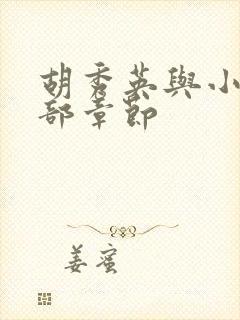 胡秀英與小
部章節
姜蜜